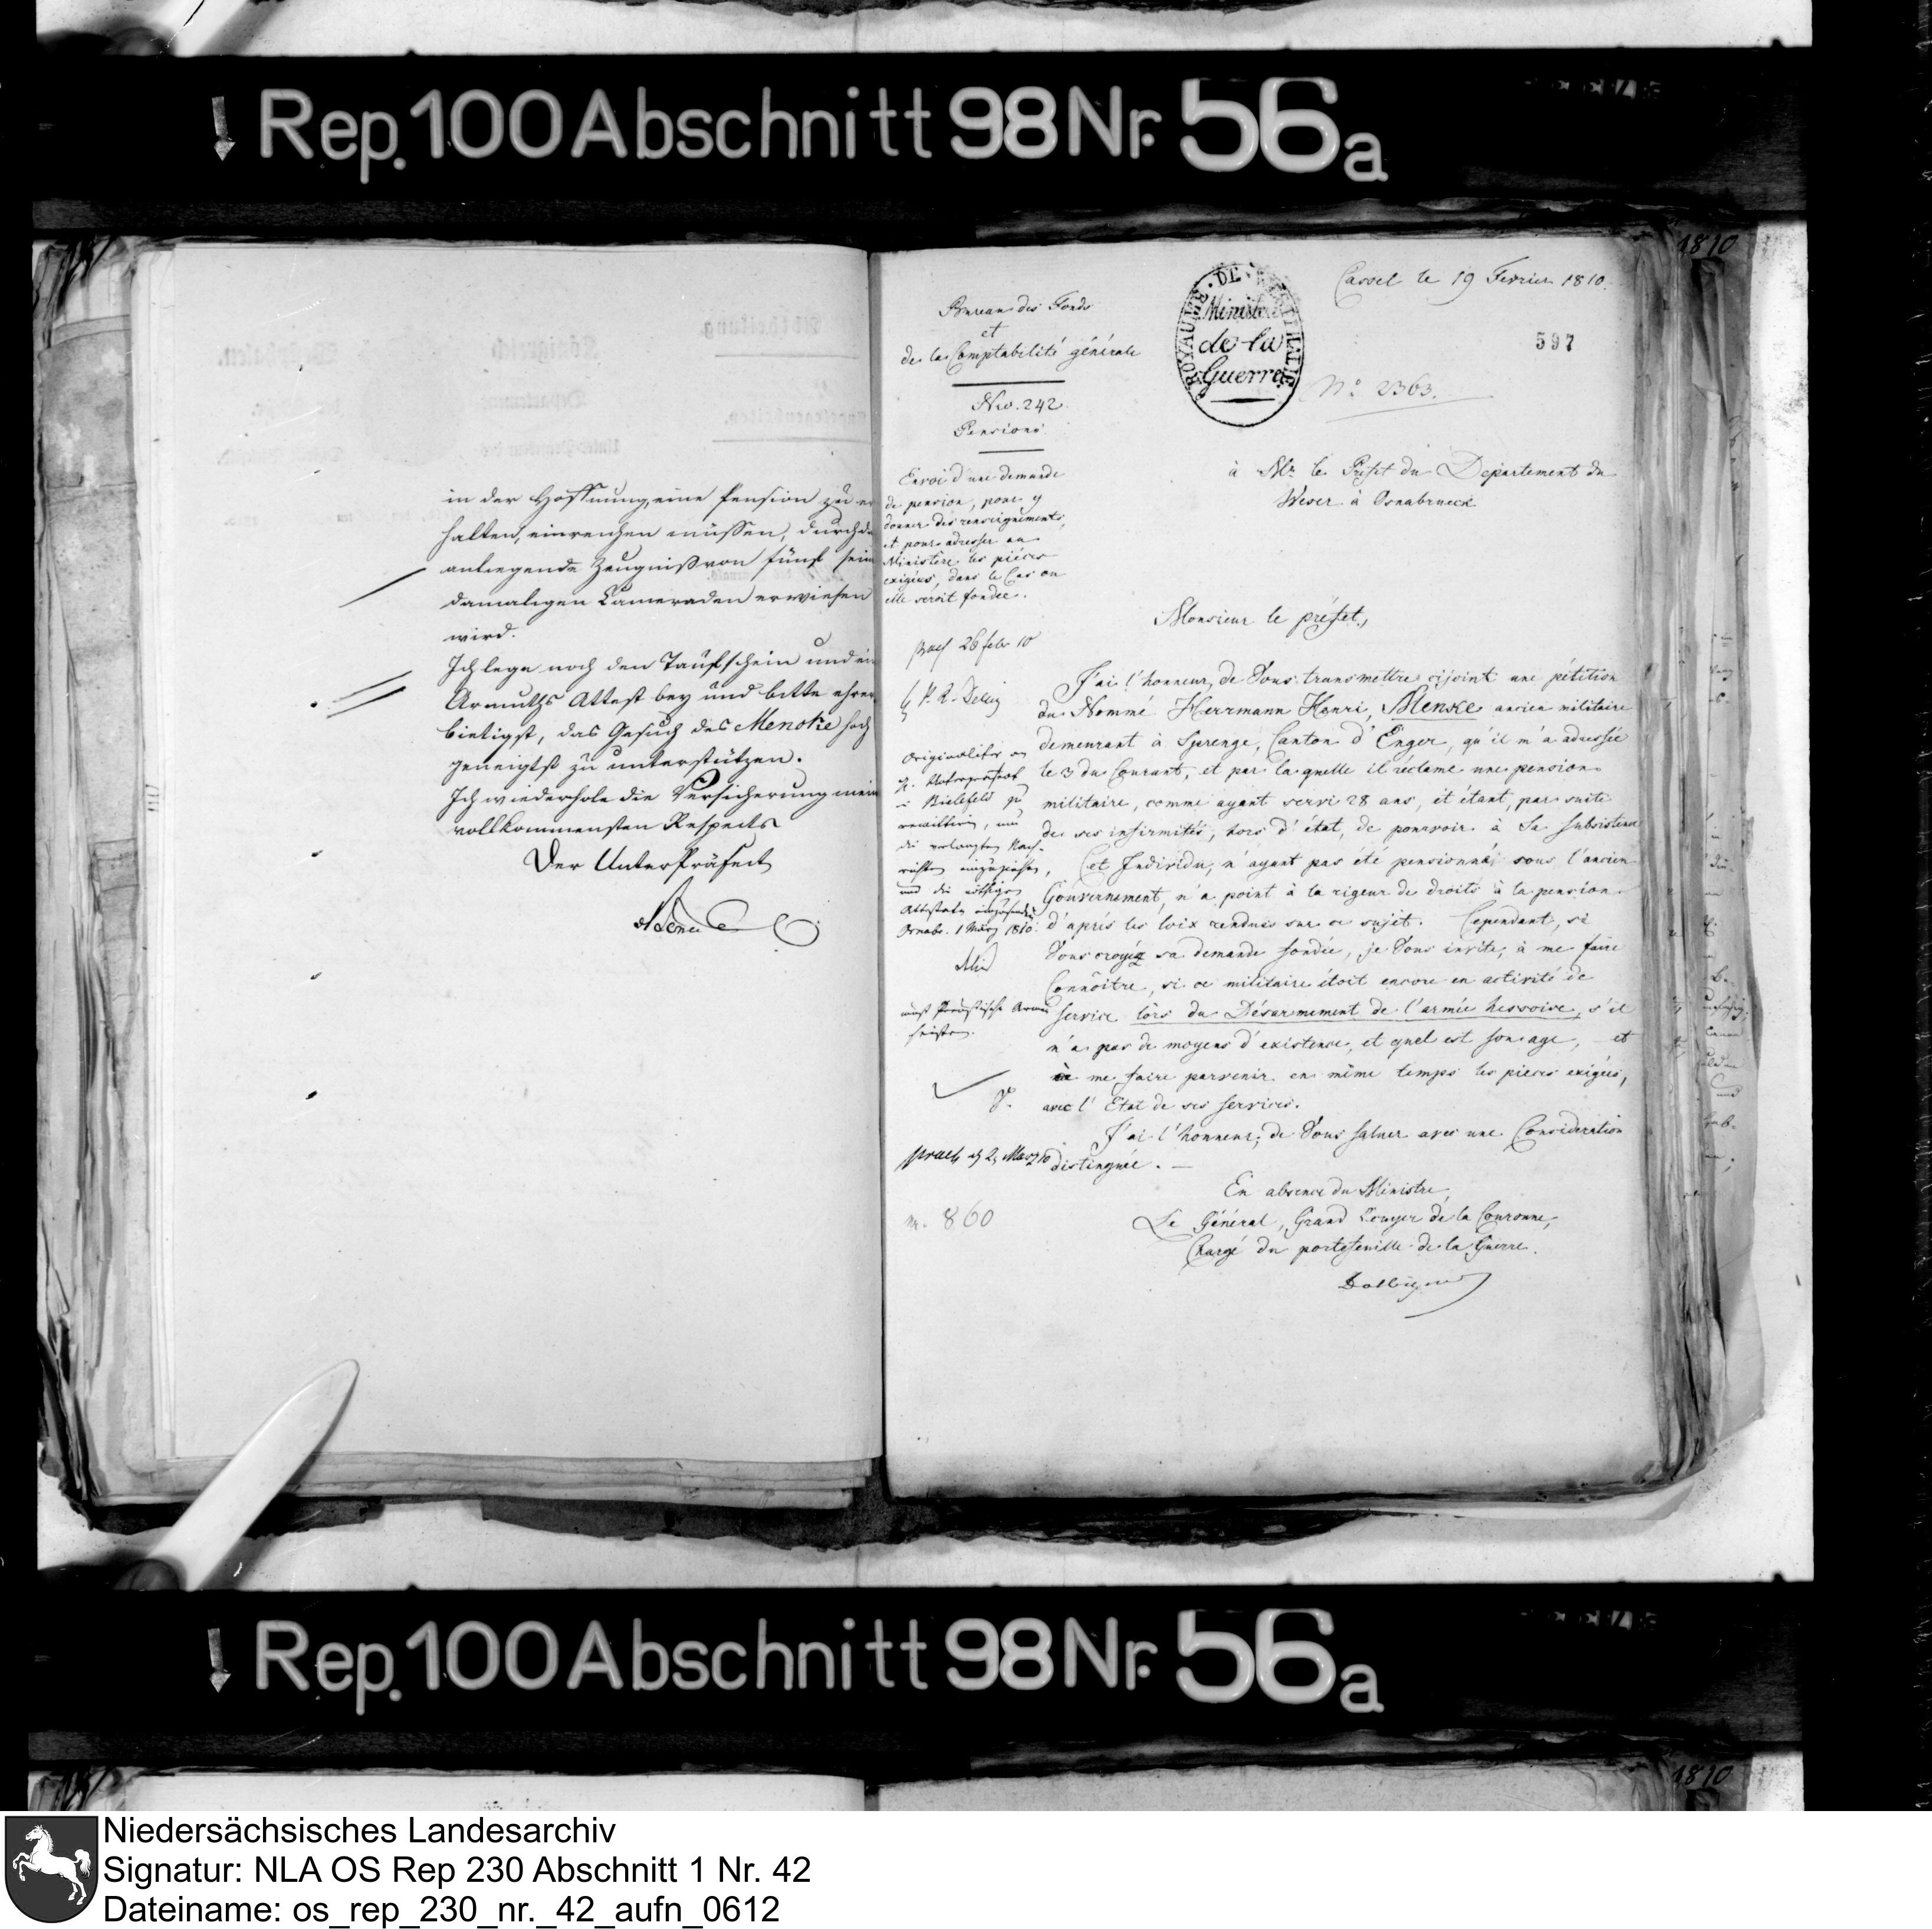 Rep. 100 Abschnitt 98 Nr. 56a
1810
in der Hoffnung, eine Pension zu er
halten, einreichen müssen, durch
anliegende Zeugniß von fünf sein
damaligen Cameraden erwiesen
wird.
Ich lege noch den Taufschein und ein
Armuths Attest bey und bitte ehrer
bietigst, das Gesuch des Mencke hoch
geneigtst zu unterstützen.
Ich wiederhole die Versicherung mein
vollkommensten Respects
Der Unterpräfect
Bureau des Fonds
et
de la Comptabilité générale
Nro. 242
Pensions
Envoi d'une demande
de pension, pour y
donner des renseignements,
et pour adresser au
Ministère les pièces
exigées, dans le Cas ou
elle seroit fondée.
ROYAUME DE WESTPHALIE
Ministère
de la
Guerre
Cassel le 19 Fevrier 1810.
597
No. 2363.
à Mr. le Préfet du Departement du
Weser à Osnabrueck
Monsieur le préfet,
J'ai l'honneur, de Vous transmettre cijoint une pétition
du Nommé Herrmann Henri, Menske ancien militaire
demeurant à Sprenge, Canton d'Enger, qu'il m'a adressée
le 3 du Courant, et par la quelle il réclame une pension
militaire, comme ayant servi 28 ans, et étant, par suite
de ses infirmités, hors d'état, de pourvoir à Sa subsistence
Cet Individu, n'ayant pas été pensionné, sous l'ancien
Gouvernement, n'a point à la rigeur de droits à la pension
d'après les loix rendues sur ce sujet. Cependant, si
Vous croyiez sa demande fondée, je Vous invite, à me faire
Connoître, si ce militaire étoit encore en activité de
service lors du Désarmement de l'armée hessoise, s'il
n'a pas de moyens d'existence, et quel est son age, et
à me faire parvenir en même temps les pieces exigées,
avec l'Etat de ses services.
J'ai l'honneur, de Vous saluer avec une Consideration
distinguée.
En absence du Ministre,
Le Général, Grand Ecuyer de la Couronne,
Chargé du portefeuille de la Guerre.
26 febr 10
Originaliter an
H. Unterpräfect
Bielefeld zu
remittiren, um
die verlangten Nach-
richten einzuziehen,
und die nöthigen
Attestate einzusenden
Osnabr. 1 März 1810.
Preußische Armee
2 Marz 10
n. 860
Rep. 100 Abschnitt 98 Nr. 56a
1810
Niedersächsisches Landesarchiv
Signatur: NLA OS Rep 230 Abschnitt 1 Nr. 42
Dateiname: os_rep_230_nr._42_aufn_0612